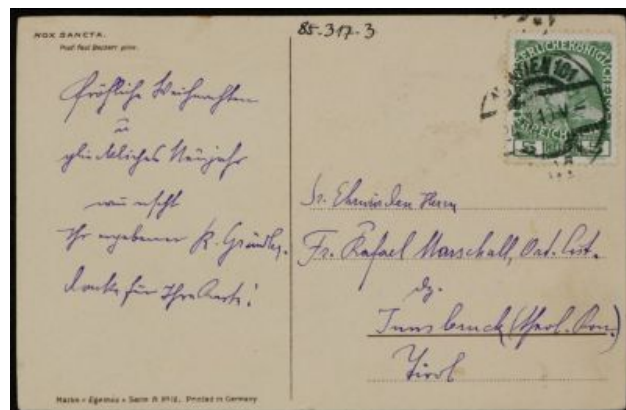 NOX SANCTA.
Prof. Paul Beckert pinx.
85-317-3
WIEN 101
Fröhliche Weihnachten
u
glückliches Neujahr
wünscht
Ihr ergebener R. Gründler.
Danke für Ihre Karte!
Sr. Ehrwürden Herrn
Fr. Rafael Marschall, Ord. Cist.
dz.
Innsbruck (theol. Kon.)
Tirol
Marke « Egemes » Serie A Nº 12. Printed in Germany